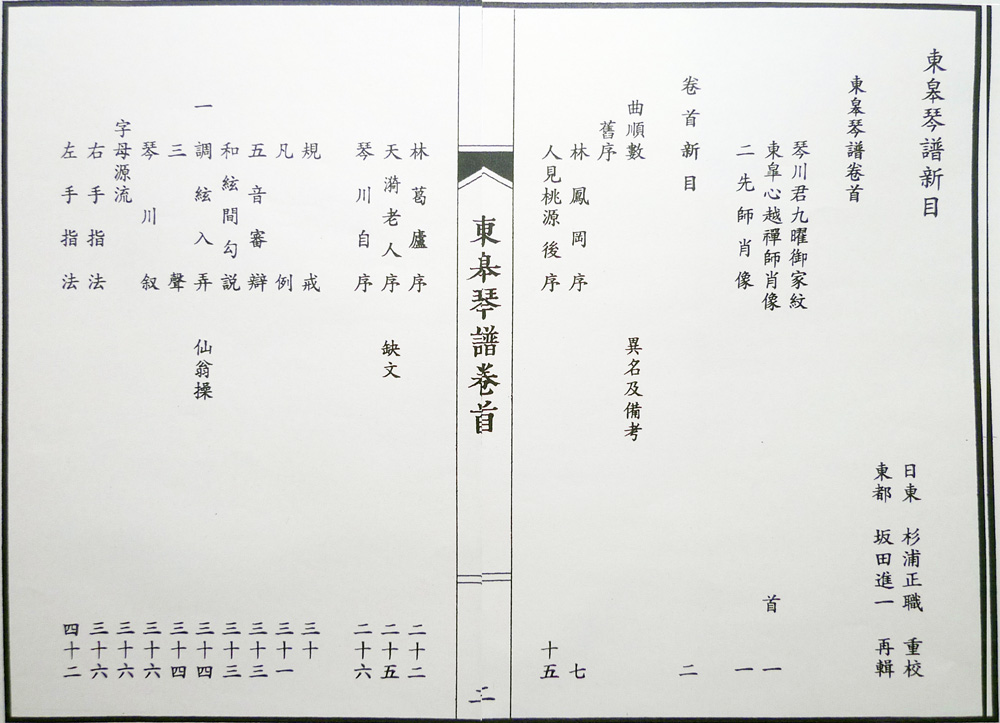 東皋琴譜新目
日東 杉浦正職 重校
東都 坂田進一 再輯
東皋琴譜卷首
琴川君九曜御家紋
東皋心越禪師肖像 首一
二先師肖像 一
卷首新目 二
曲順數 異名及備考
舊序
林鳳岡序 七
人見桃源後序 十五
東皋琴譜卷首
二
林葛廬序 二十二
天漪老人序 缺文 二十五
琴川自序 二十六
規戒 三十
凡例 三十一
五音審辯 三十三
和絃間勾說 三十三
一調絃入弄 仙翁操 三十四
三聲 三十四
琴川叙 三十六
字母源流 三十六
右手指法 三十六
左手指法 四十二